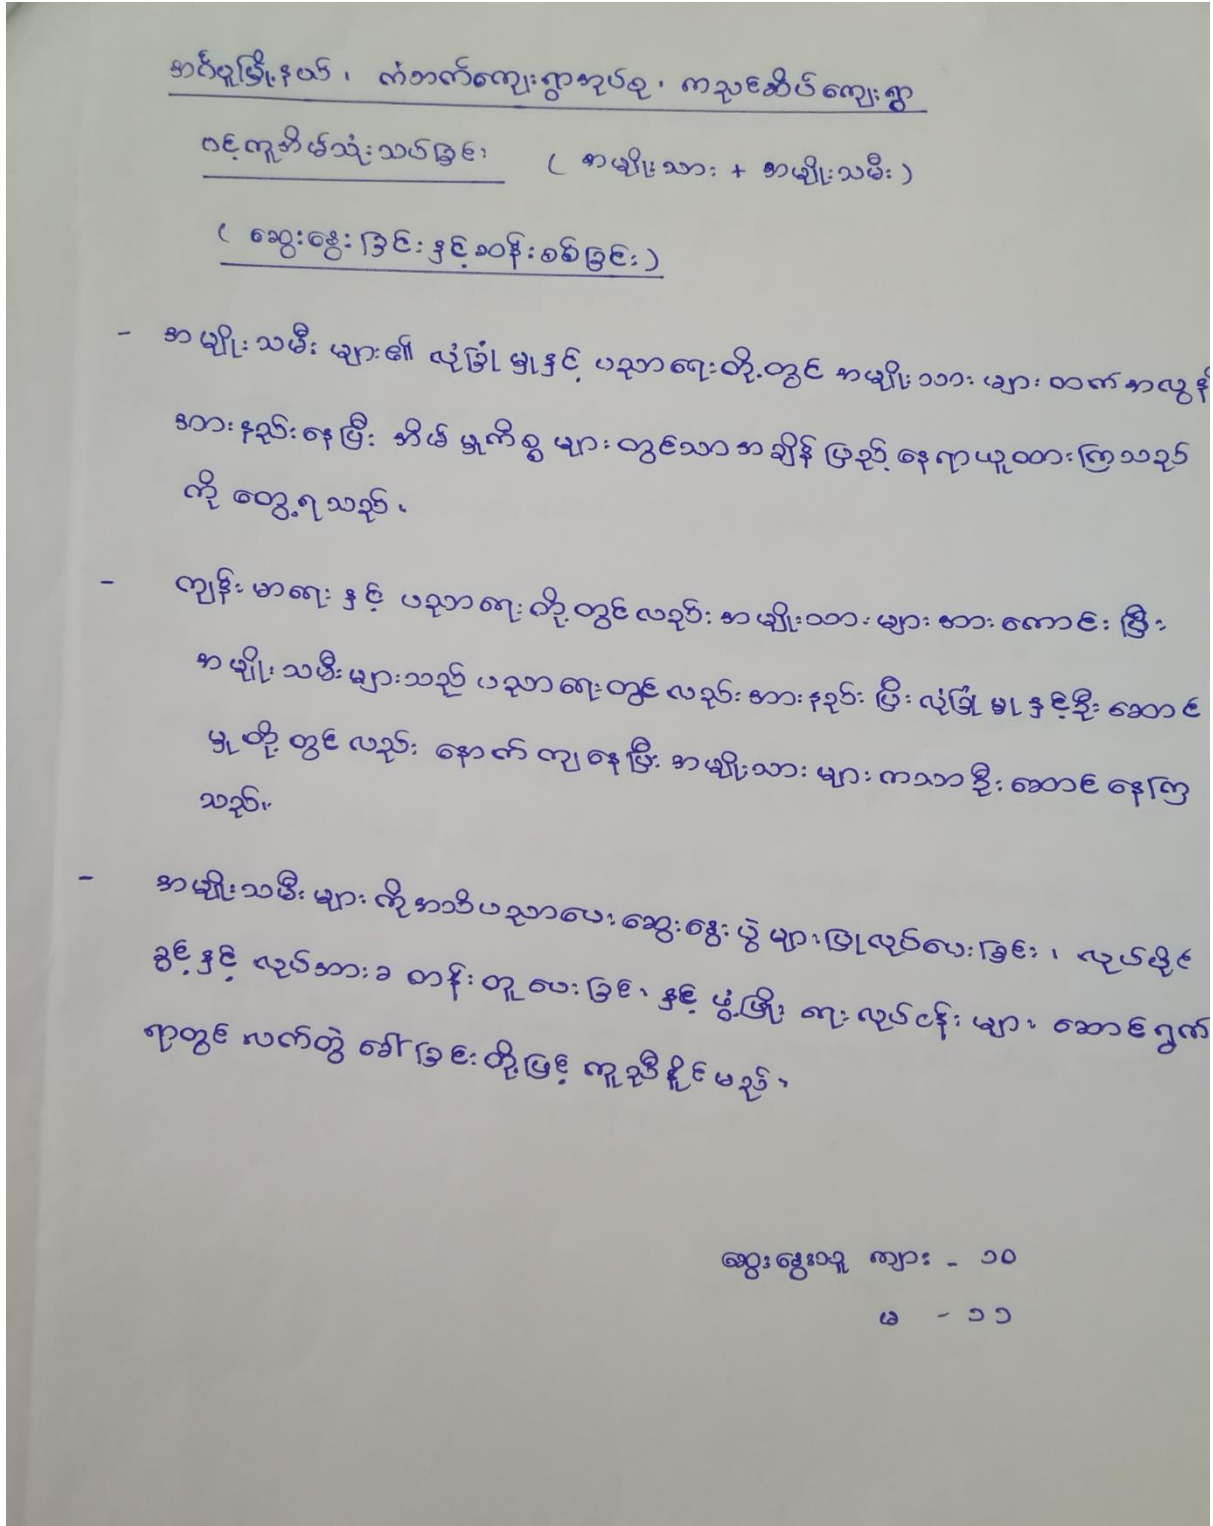 အင်္ဂပူမြို့နယ်၊ ကံဘက်ကျေးရွာအုပ်စု၊ ကညင်ဆိပ်ကျေးရွာ
ပင့်ကူအိမ်သုံးသပ်ခြင်း (အမျိုးသား + အမျိုးသမီး)
(ဆွေးနွေးခြင်းနှင့်ဆန်းစစ်ခြင်း)
- အမျိုးသမီးများ၏ လုံခြုံမှုနှင့် ပညာရေးတို့တွင် အမျိုးသားများထက်အလွန်
အားနည်းနေပြီး အိမ်မှုကိစ္စများတွင်သာအချိန်ပြည့်နေရာယူထားကြသည်
ကို တွေ့ရသည်။
- ကျန်းမာရေးနှင့် ပညာရေးတို့တွင်လည်း အမျိုးသားများအားကောင်းပြီး
အမျိုးသမီးများသည် ပညာရေးတွင်လည်းအားနည်းပြီး လုံခြုံမှုနှင့်ဦးဆောင်
မှုတို့တွင်လည်း နောက်ကျနေပြီး အမျိုးသားများကသာဦးဆောင်နေကြ
သည်။
- အမျိုးသမီးများကိုအသိပညာပေးဆွေးနွေးပွဲများပြုလုပ်ပေးခြင်း၊ လုပ်ပိုင်
ခွင့်နှင့် လုပ်အားခ တန်းတူပေးခြင်း နှင့် ဖွံ့ဖြိုးရေးလုပ်ငန်းများ ဆောင်ရွက်
ရာတွင် လက်တွဲခေါ်ခြင်းတို့ဖြင့် ကူညီနိုင်မည်။
ဆွေးနွေးသူ ကျား - ၁၀
မ - ၁၁